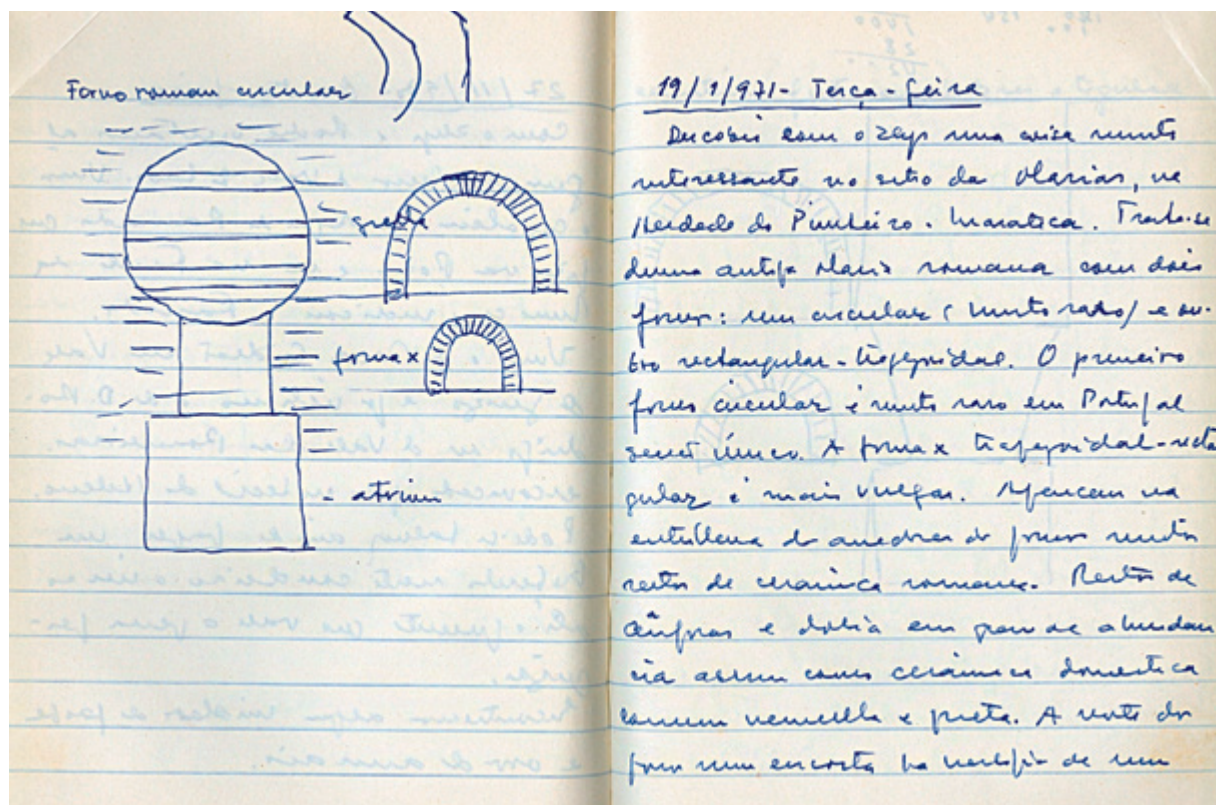 Forno roman circular
grelha
fornax
atrium
19/1/971 - Terça-feira
Descobri com o Zep uma coisa muito
interessante no sitio da Olarias, na
Herdade do Pinheiro. Maratica. Trata-se
duma antiga olaria romana com dois
fornos: um circular (muito raro) e ou-
tro rectangular-trapezoidal. O primeiro
forno circular é muito raro em Portugal
senão único. A fornax trapezoidal-rectan
gular é mais vulgar. Aparecem na
entulheira do do forno muitos
restos de cerâmica romana. Restos de
ânforas e dolia em grande abundan
cia assim como cerâmica domestica
comum vermelha e preta. A norte do
forno numa encosta ha vestígios de um